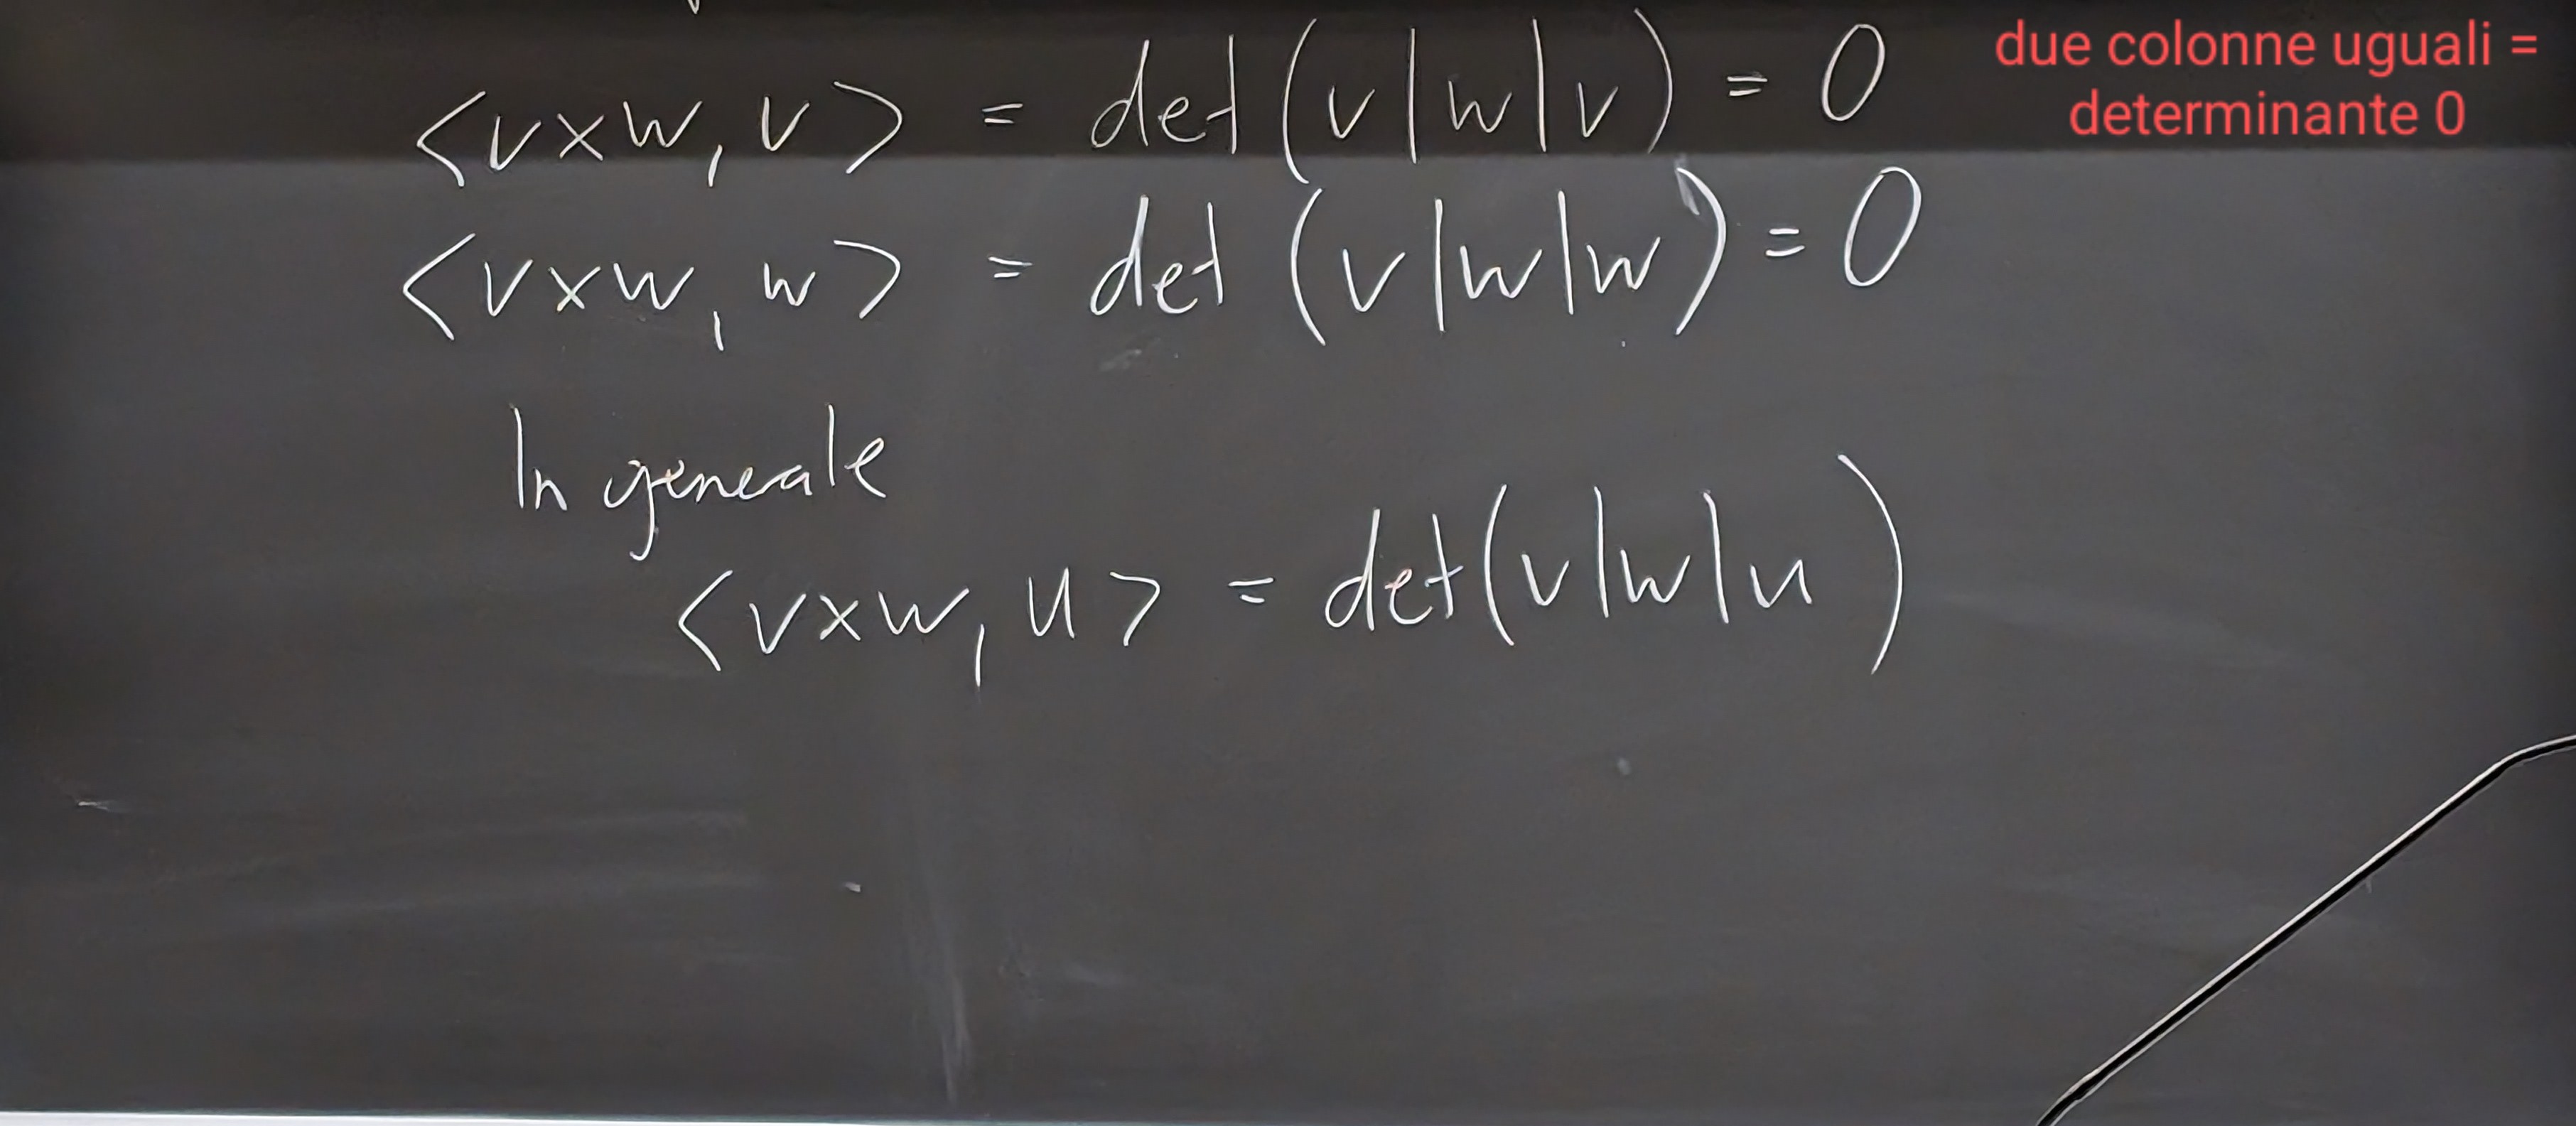 <v×w, v> = det(v|w|v) = 0
due colonne uguali =
determinante 0
<v×w, w> = det(v|w|w) = 0
In generale
<v×w, u> = det(v|w|u)